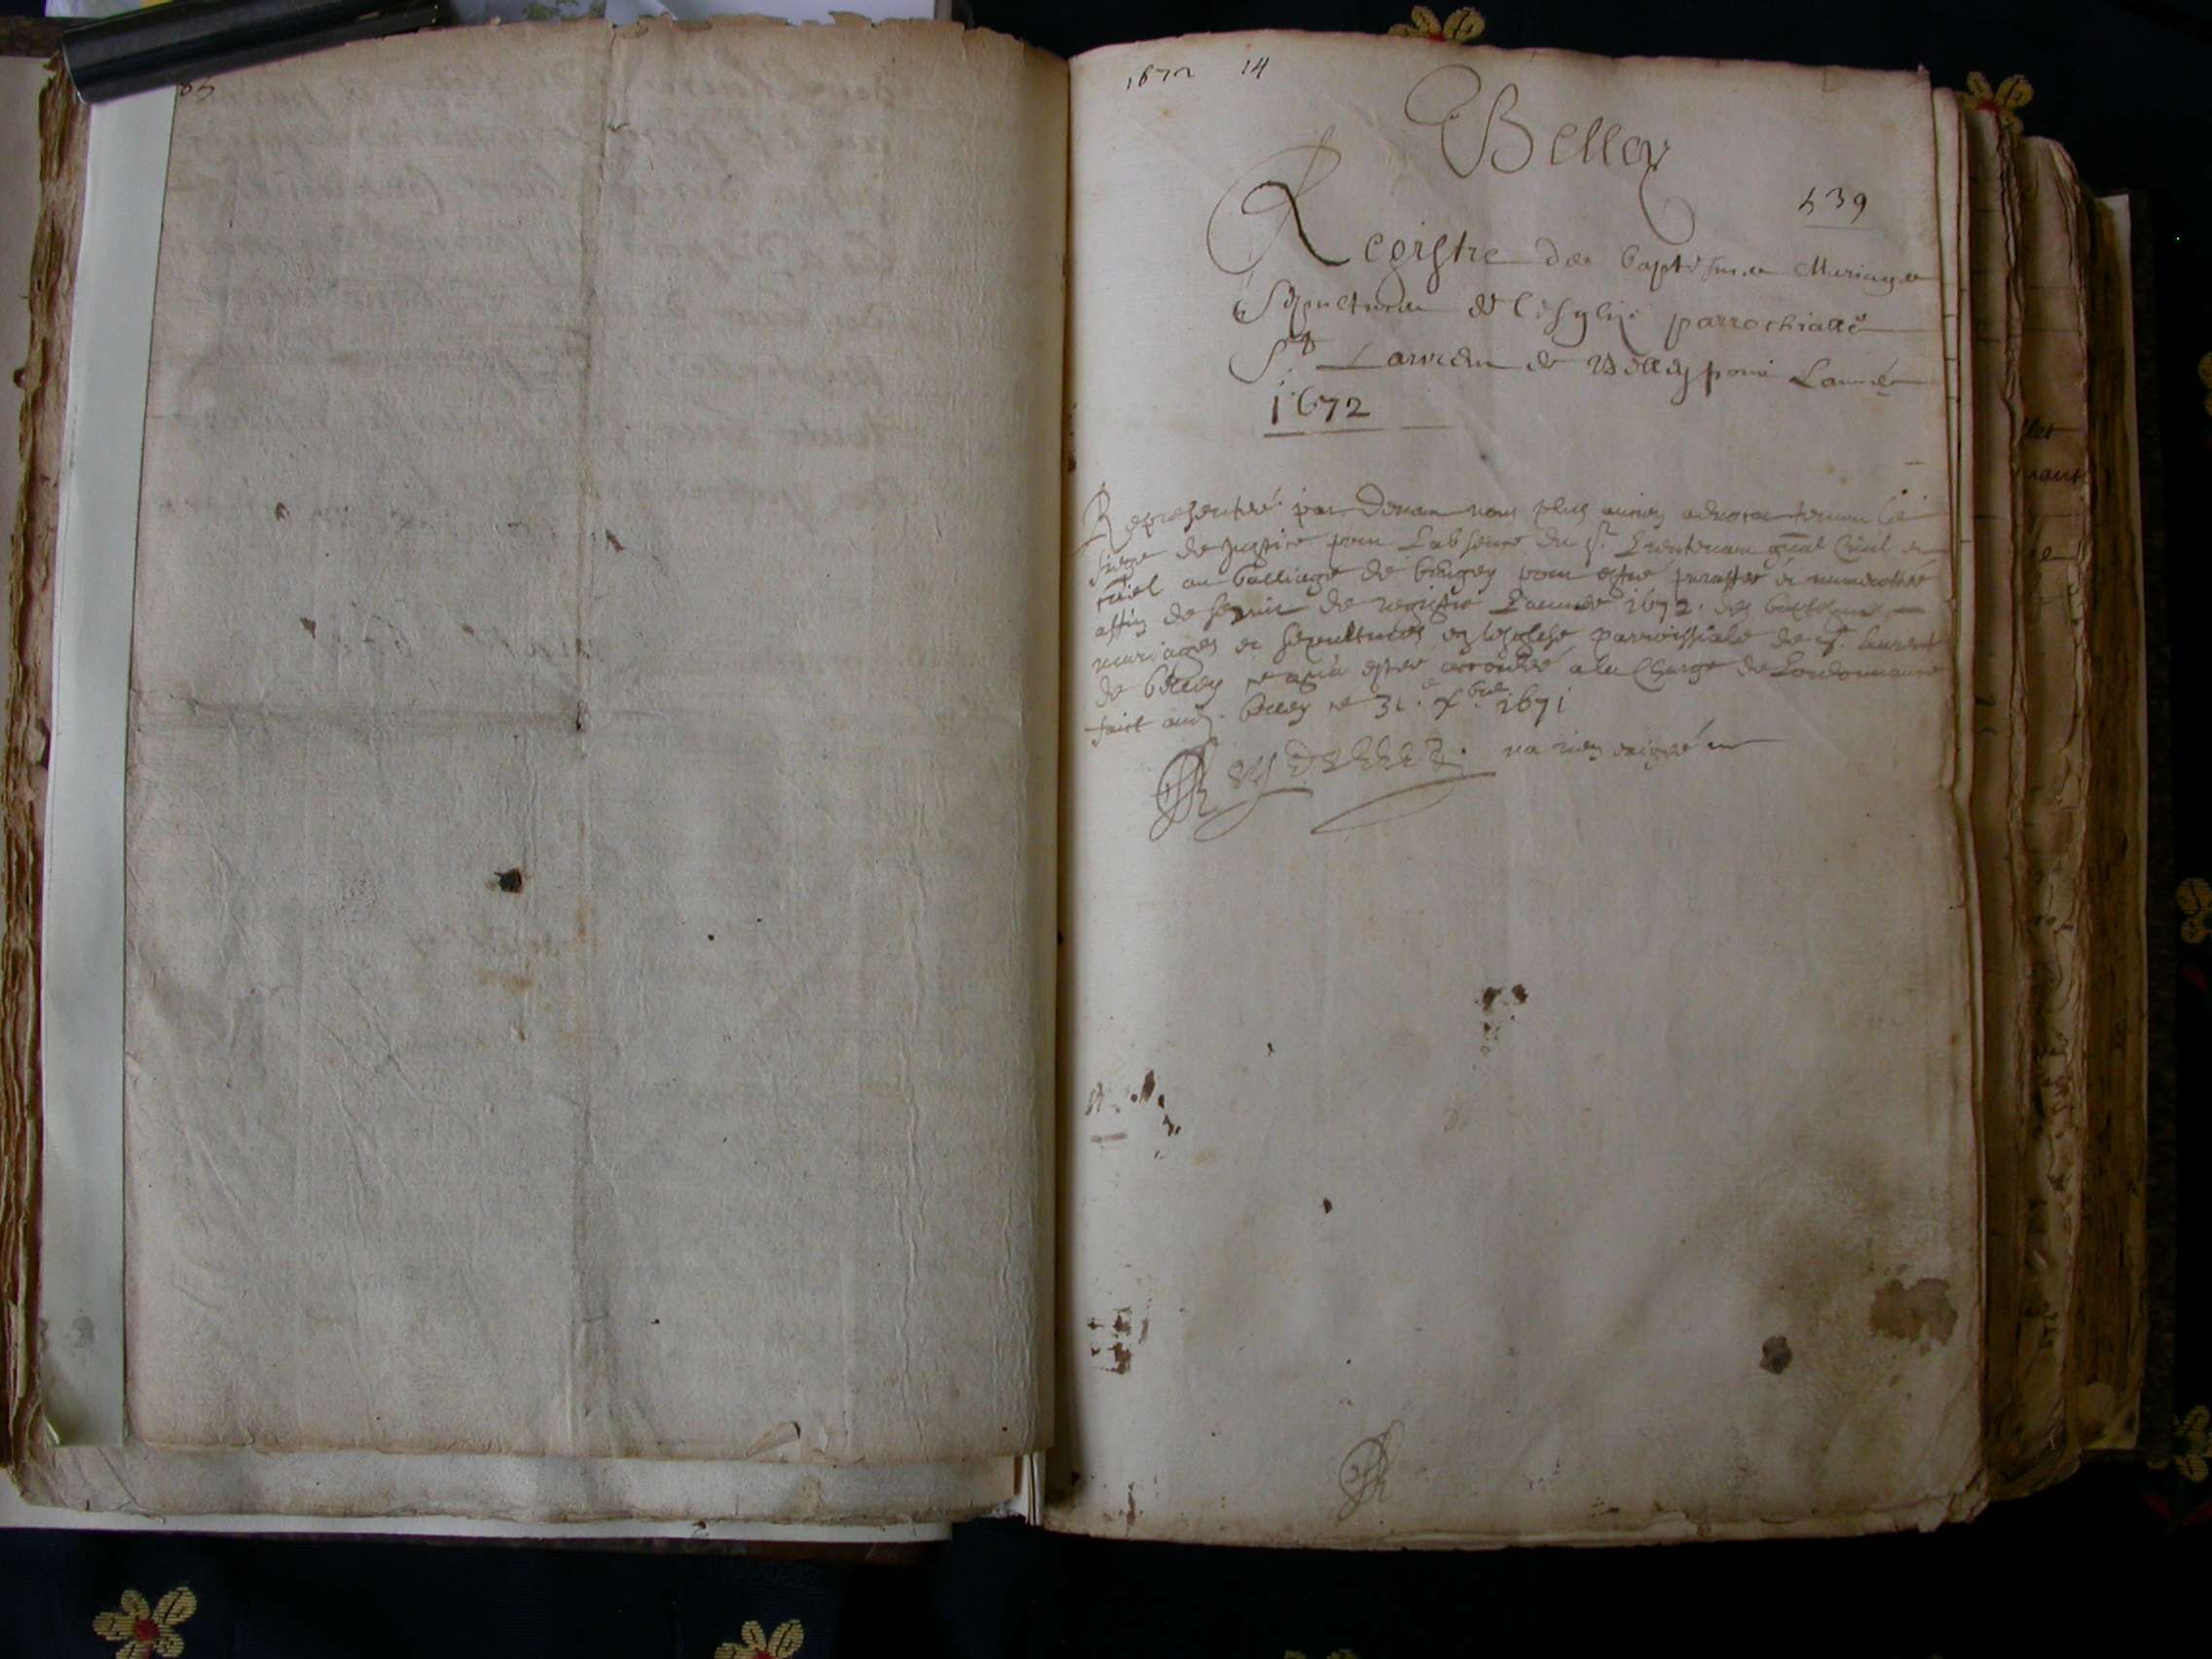 1672 14
Belley
539
Registre des baptesmes Mariages
& Sepultures de lesglize parrochialle
St Laurens de Belley pour Lannée
1672
Representé par devan nous plus ancien advocat tenant le
siege de Justice pour Labsence du Sr Lieutenant gnal Civil et
criel au balliage de bugey pour estre paraffé et numerotté
affin de servir de registre Lannée 1672. des baptesmes
mariages et sepultures en lesglese parroissiale de St. laurent
de belley ce a esté accordé a la Charge de Lordonnance
faict aud. belley ce 31e xbre 1671
na rien exigé